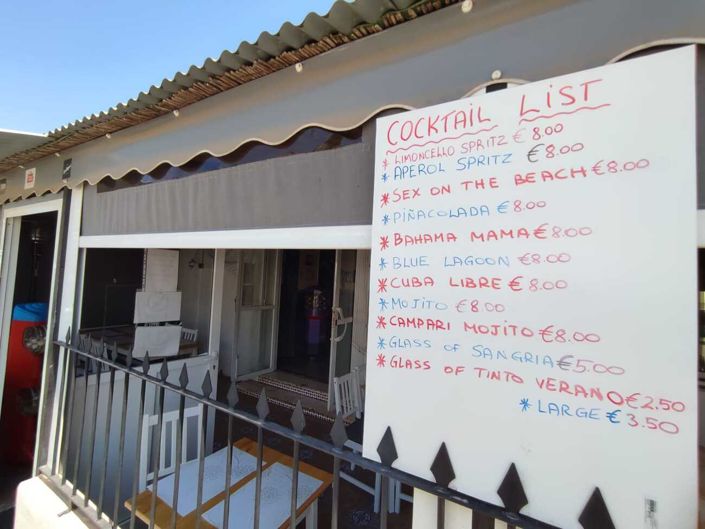 COCKTAIL LIST
* LIMONCELLO SPRITZ € 8.00
* APEROL SPRITZ € 8.00
* SEX ON THE BEACH €8.00
* PIÑACOLADA €8.00
* BAHAMA MAMA €8.00
* BLUE LAGOON €8.00
* CUBA LIBRE € 8.00
* MOJITO €8.00
* CAMPARI MOJITO €8.00
* GLASS OF SANGRIA €5.00
* GLASS OF TINTO VERANO €2.50
* LARGE € 3.50